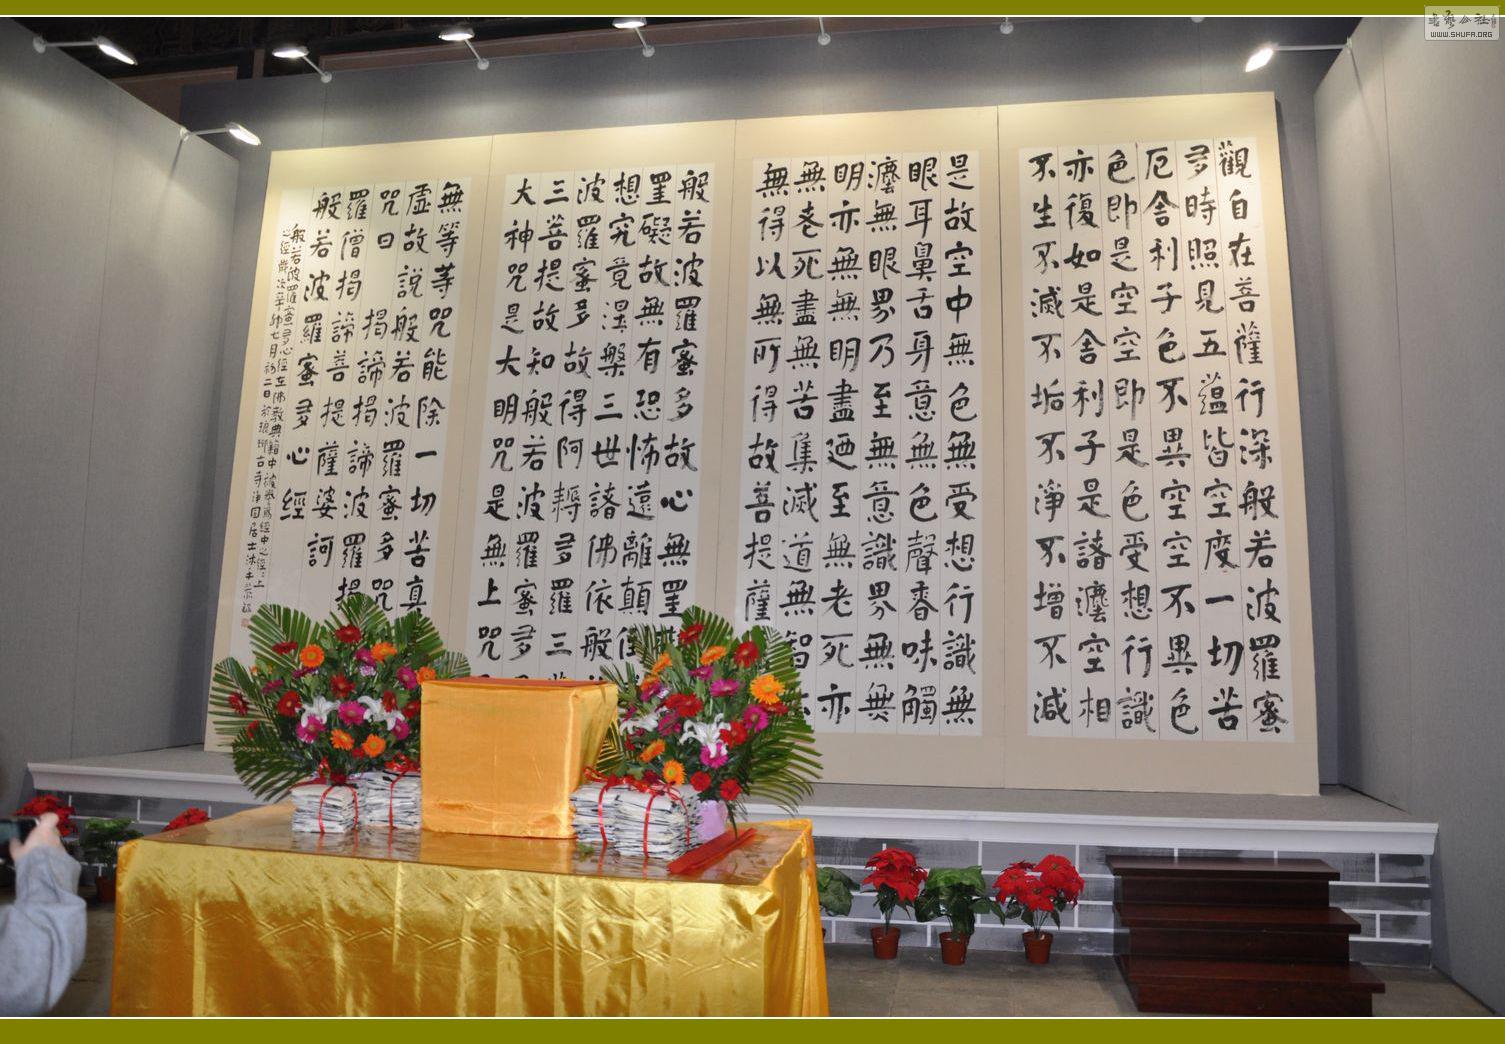 觀自在菩薩行深般若波羅蜜
多時照見五蘊皆空度一切苦
厄舍利子色不異空空不異色
色即是空空即是色受想行識
亦復如是舍利子是諸灋空相
不生不滅不垢不淨不增不減
是故空中無色無受想行識無
眼耳鼻舌身意無色聲香味觸
灋無眼界乃至無意識界無無
明亦無無明盡廼至無老死亦
無老死盡無苦集滅道無智亦
無得以無所得故菩提薩
般若波羅蜜多故心無罣
罣礙故無有恐怖遠離顛倒
想究竟涅槃三世諸佛依般
波羅蜜多故得阿耨多羅三
三菩提故知般若波羅蜜多
大神咒是大明咒是無上咒
無等等咒能除一切苦真
虛故說般若波羅蜜多咒
咒曰揭諦揭諦波羅揭
羅僧揭諦菩提薩婆訶
般若波羅蜜多心經
般若波羅蜜多心經在佛教典籍中被譽為經中之經
之經歲次辛卯七月初二日於琅琊古寺淨園居士沐手恭錄
WWW.SHUFA.ORG